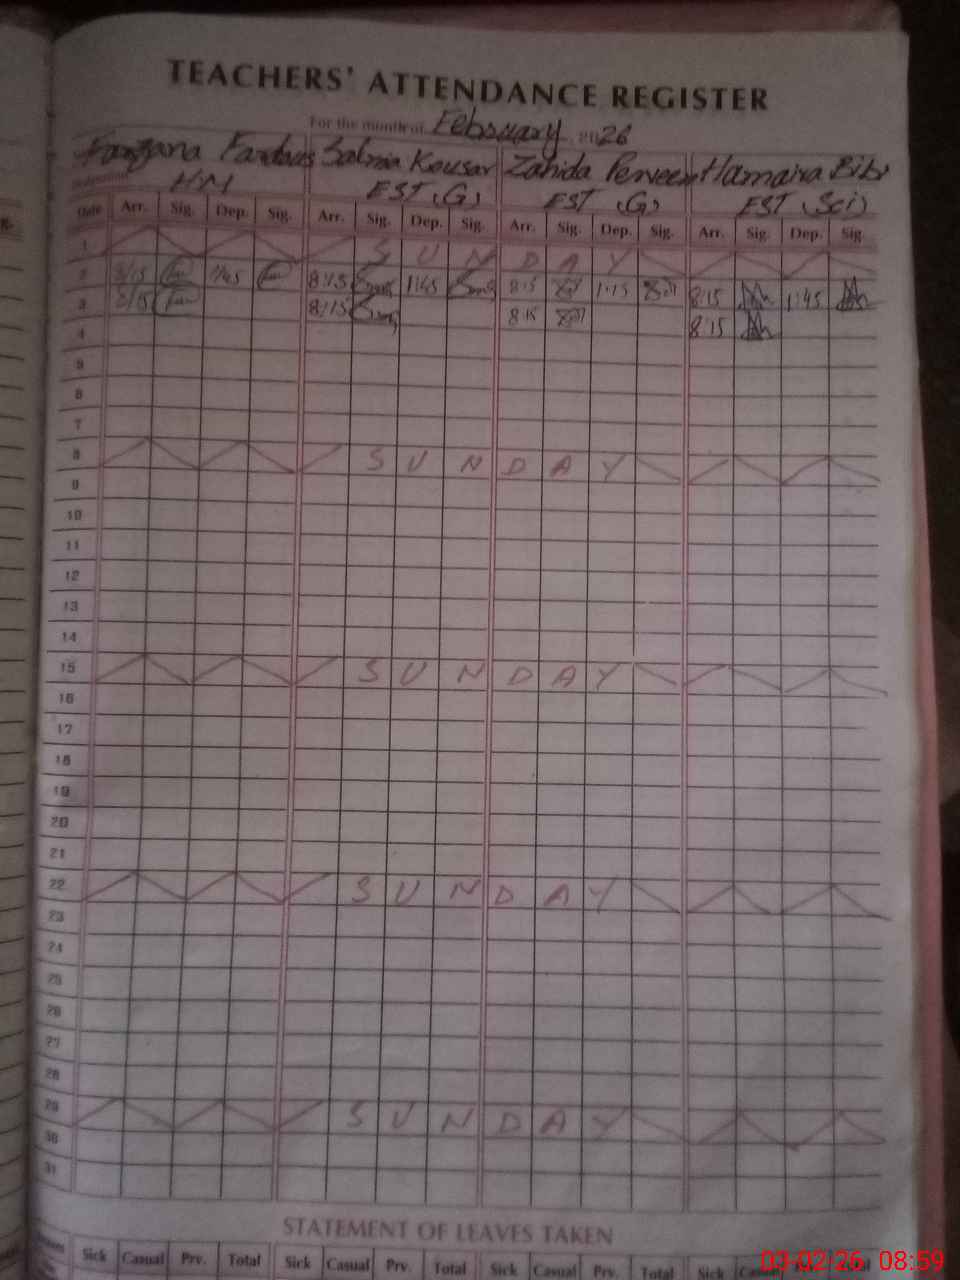 TEACHERS' ATTENDANCE REGISTER
For the month of February 2026
Farzana Fardous Salmia Kousar Zahida Perveen Hamaira Bibi
HM EST (G) EST (G) EST (Sci)
Date Arr. Sig. Dep. Sig. Arr. Sig. Dep. Sig. Arr. Sig. Dep. Sig. Arr. Sig. Dep. Sig.
1 S U N D A Y
2 8:15 1:45 8:15 1:45 8:15 1:15 8:15 1:45
3 8:15 8:15 8:15 8:15
4
5
6
7
8 S U N D A Y
9
10
11
12
13
14
15 S U N D A Y
16
17
18
19
20
21
22 S U N D A Y
23
24
25
26
27
28
29 S U N D A Y
30
31
STATEMENT OF LEAVES TAKEN
Sick Casual Prv. Total Sick Casual Prv. Total Sick Casual Prv. Total Sick Casual
03-02-26 08:59